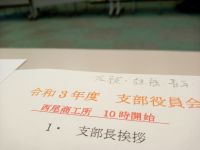 令和3年度 支部役員会
西尾商工所 10時開始
1・ 支部長挨拶